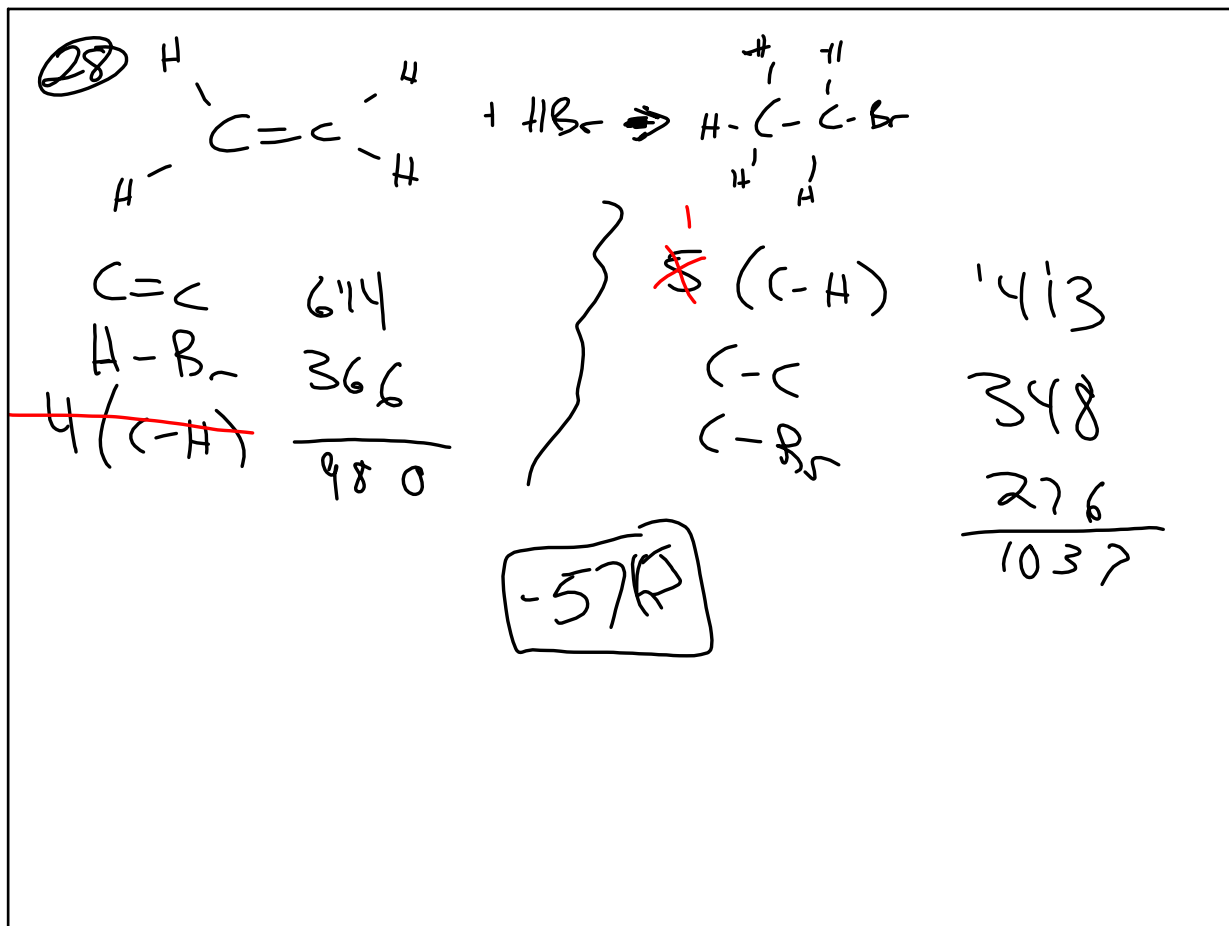 28
H H H H
C=C + HBr → H-C-C-Br
H H H H
C=C 614
H-Br 366
4(C-H)
980
1
5 (C-H) 413
C-C 348
C-Br 276
1037
-57